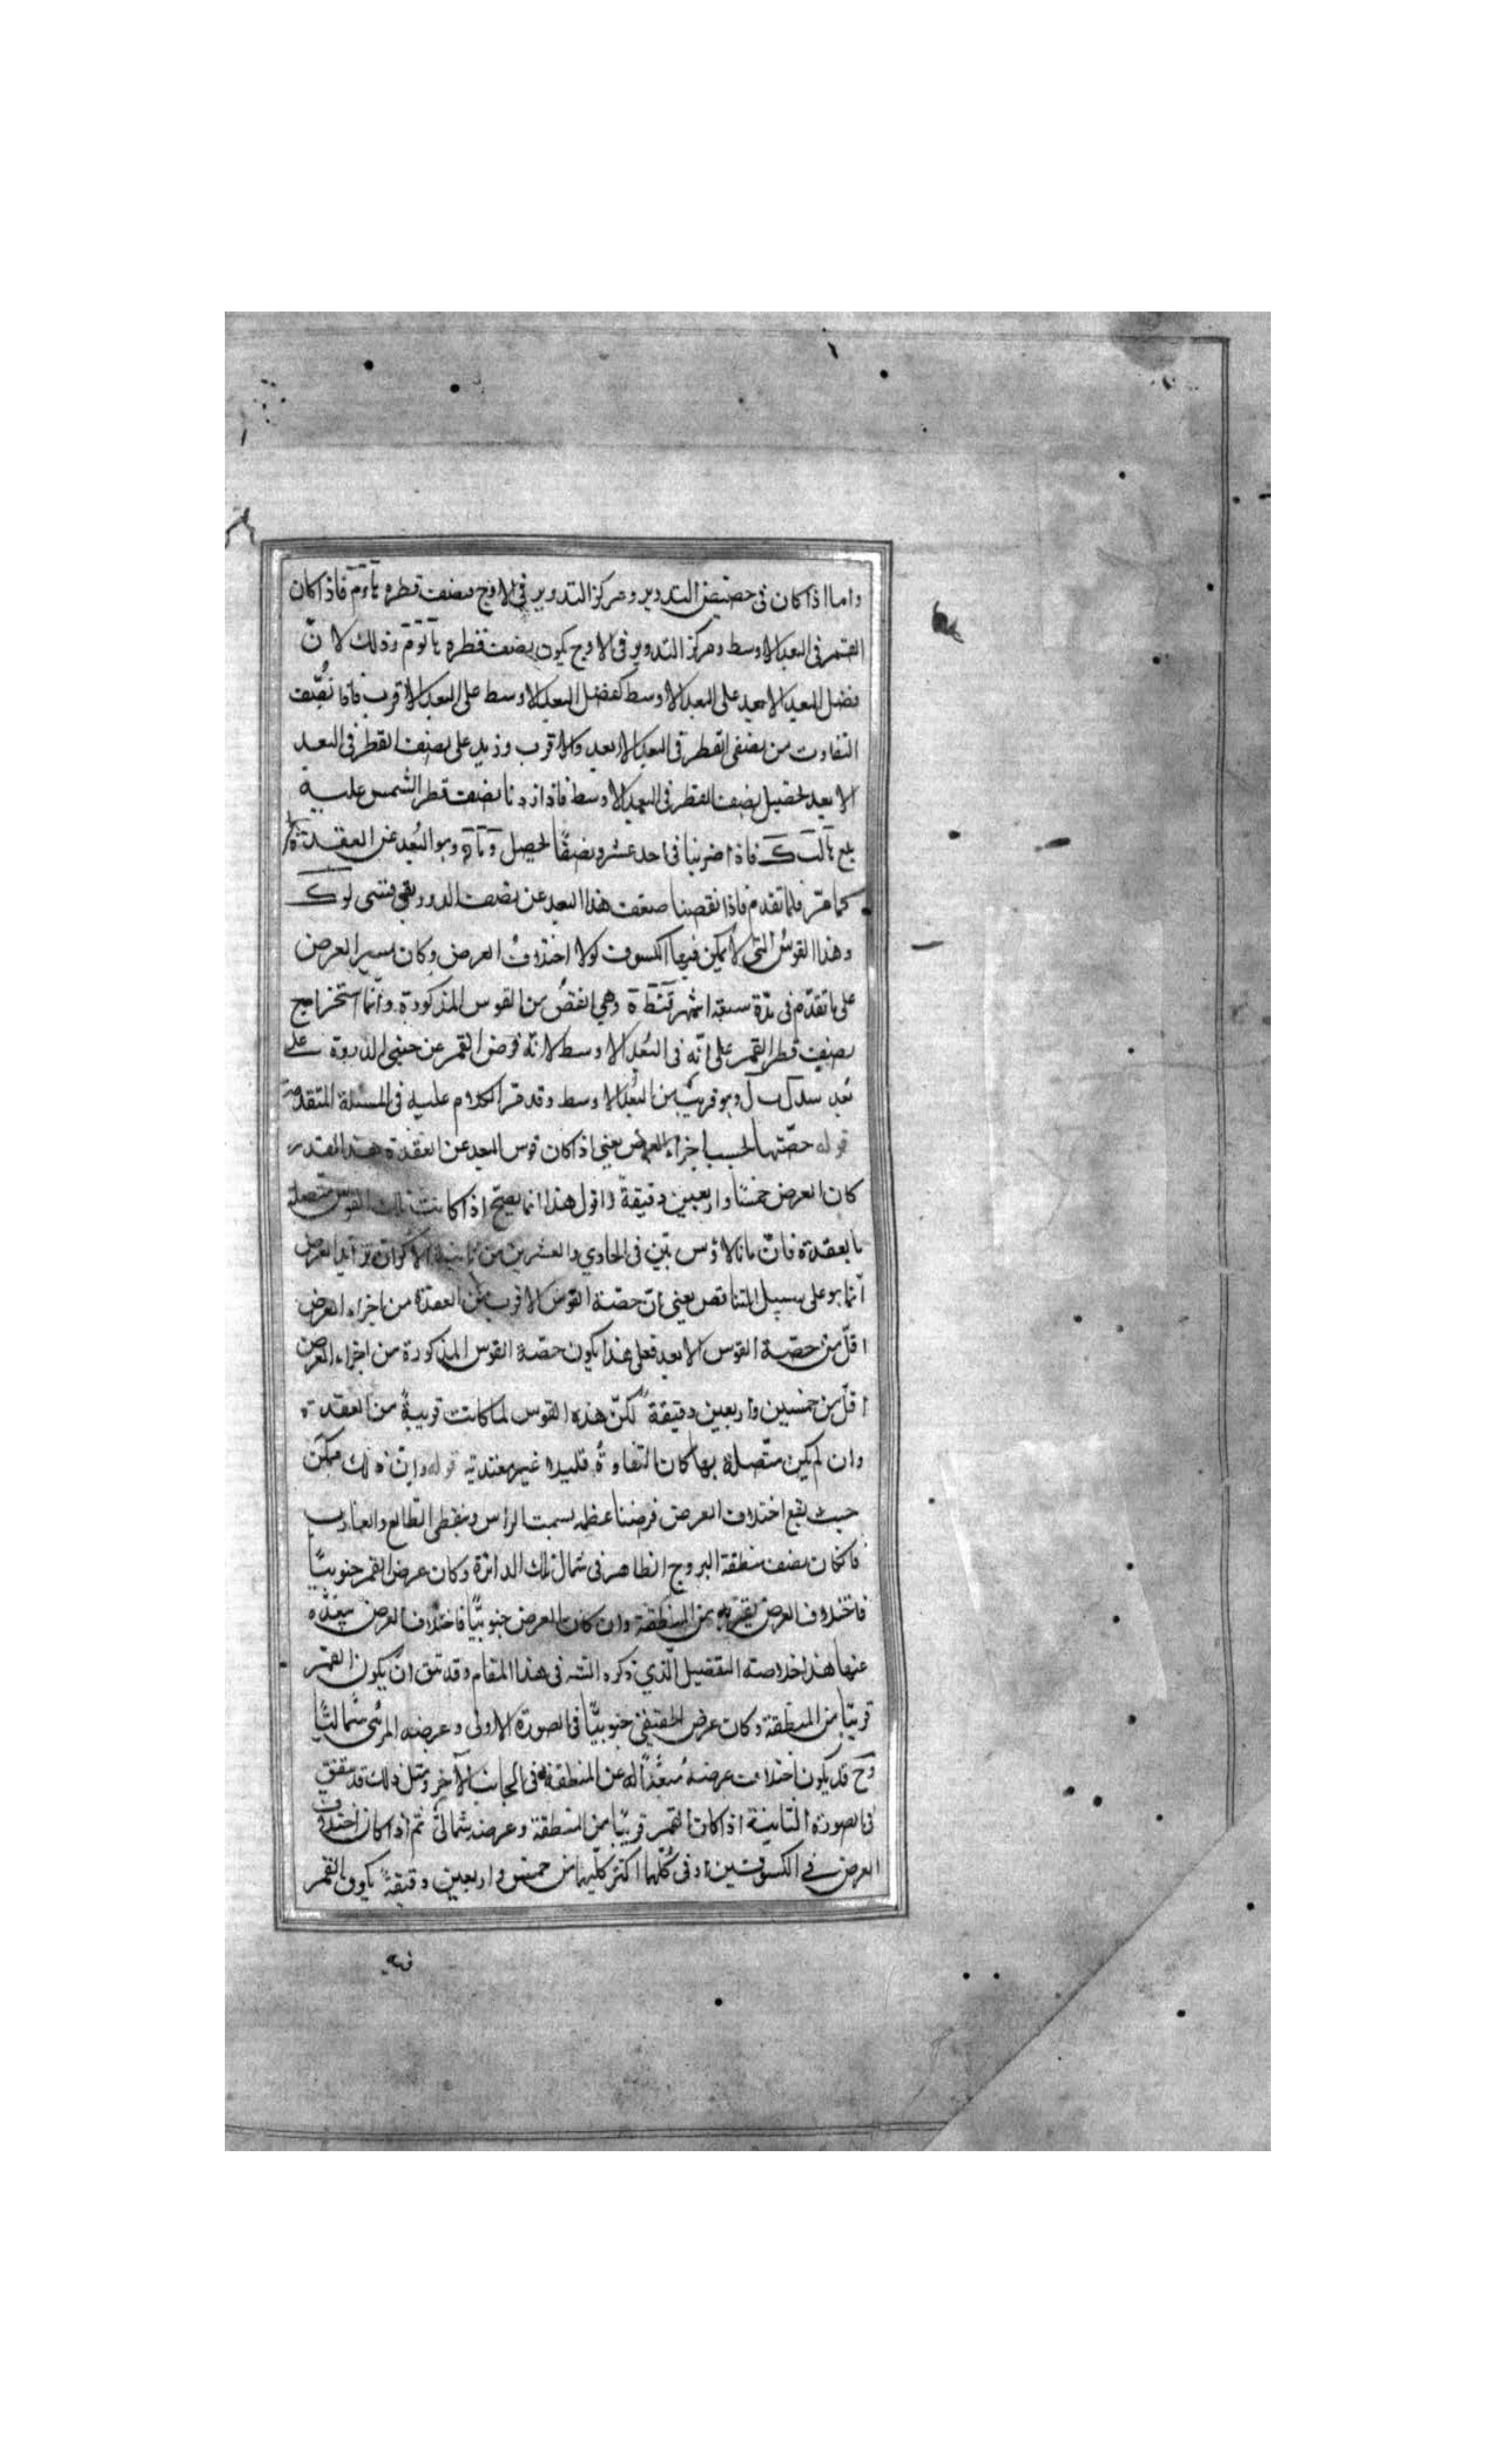 واما اذا كان فى حضيض التدوير ومركز التدوير فى الاوج فنصف قطره فاذا كان
القمر فى البعد الاوسط ومركز التدوير فى الاوج يكون نصف قطره وذلك لانّ
فضل البعد الابعد على البعد الاوسط كفضل البعد الاوسط على البعد الاقرب فاذا نُصّف
التفاوت من نصفى القطر فى البعد الابعد والاقرب وزيد على نصف القطر فى البعد
الابعد لحصل نصف القطر فى البعد الاوسط فاذا زدنا نصف قطر الشمس عليه
بلغ فاذا ضربنا فى احد عشر ونصفًا لحصل وهو البُعد عن العقدة
كما مرّ فلما تقدم فاذا نقصنا ضعف هذا البعد عن نصف الدور بقى
وهذا القوسُ التى لا يمكن فيها الكسوف لولا اختلافُ العرض وكان مسير العرض
على ما تقدّم فى مدّة سبعة اشهر وهى انقصُ من القوس المذكورة وانّما استخراج
نصف قطر القمر على انّه فى البُعد الاوسط لانّه فرض القمر عن جنبى الذروة على
بُعد وهو قريبٌ من البُعد الاوسط وقد مرّ الكلام عليه فى المسئلة المتقدمة
قوله حصّتها بحسب اجزاء العرض يعنى اذا كان قوس البعد عن العقدة هذا القدر
كان العرض خمسًا واربعين دقيقةً واقول هذا انما يصحّ اذا كانت تلك القوس متصلة
بالعقدة فانّ مانالاوس بيّن فى الحادي والعشرين من ثانية الاكران تزايد العرض
انّما هو على سبيل التناقص يعنى انّ حصّة القوس الاقرب من العقدة من اجزاء العرض
اقلّ من حصّة القوس الابعد فعلى هذا يكون حصّة القوس المذكورة من اجزاء العرض
اقلّ من خمسين واربعين دقيقة لكنّ هذه القوس لما كانت قريبةً من العقدة
وان لم يكن متّصلة بها كان التفاوتُ قليلا غير معتدّ به قوله وانّ ذلك ممكن
حيث يقع اختلاف العرض فرضنا عظيمة بسمت الراس ونقطى الطالع والغارب
فاذا كان نصف منطقة البروج الظاهر فى شمال تلك الدائرة وكان عرض القمر جنوبيًّا
فاختلاف العرض يقرّبه من المنطقة وان كان العرض جنوبيًّا فاختلاف العرض يبعّده
عنها هذا خلاصة التفصيل الّذي ذكره الشه فى هذا المقام وقد يتفق ان يكون القمر
قريبًا من المنطقة وكان عرض الحقيقى جنوبيًّا فى الصورة الاولى وعرضه المرئى شماليًّا
وح قد يكون اختلاف عرضه مُبعّدًا له عن المنطقة فى الجانب الآخر ومثل ذلك قد يتفق
فى الصورة الثانية اذا كان القمر قريبًا من المنطقة وعرضه شمالىّ ثم اذا كان اختلاف
العرض فى الكسوفين او فى كليهما اكثر من خمس واربعين دقيقةً يكون القمر
فيه